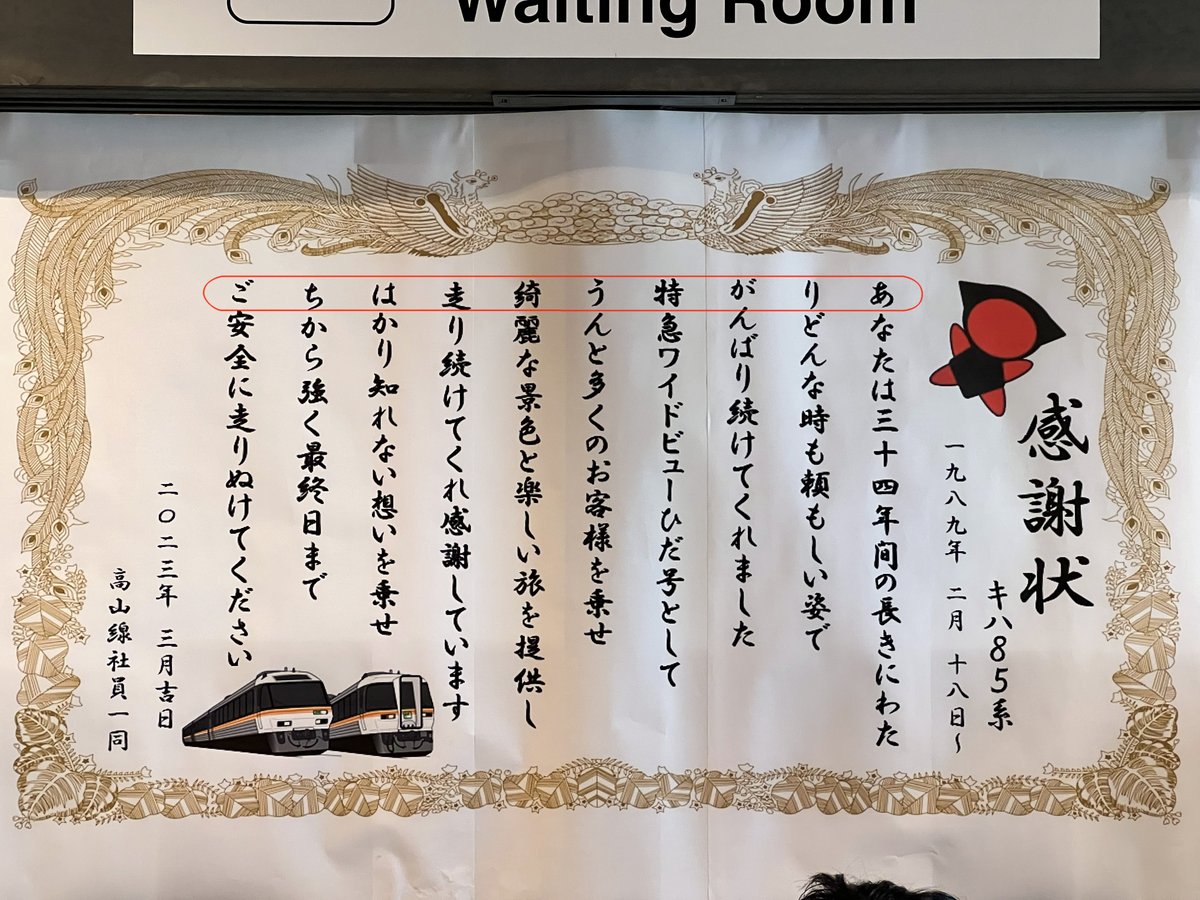 Waiting Room
感謝状
キハ85系
一九八九年 二月 十八日~
あなたは三十四年間の長きにわた
りどんな時も頼もしい姿で
がんばり続けてくれました
特急ワイドビューひだ号として
うんと多くのお客様を乗せ
綺麗な景色と楽しい旅を提供し
走り続けてくれ感謝しています
はかり知れない想いを乗せ
ちから強く最終日まで
ご安全に走りぬけてください
二〇二三年 三月吉日
高山線社員一同